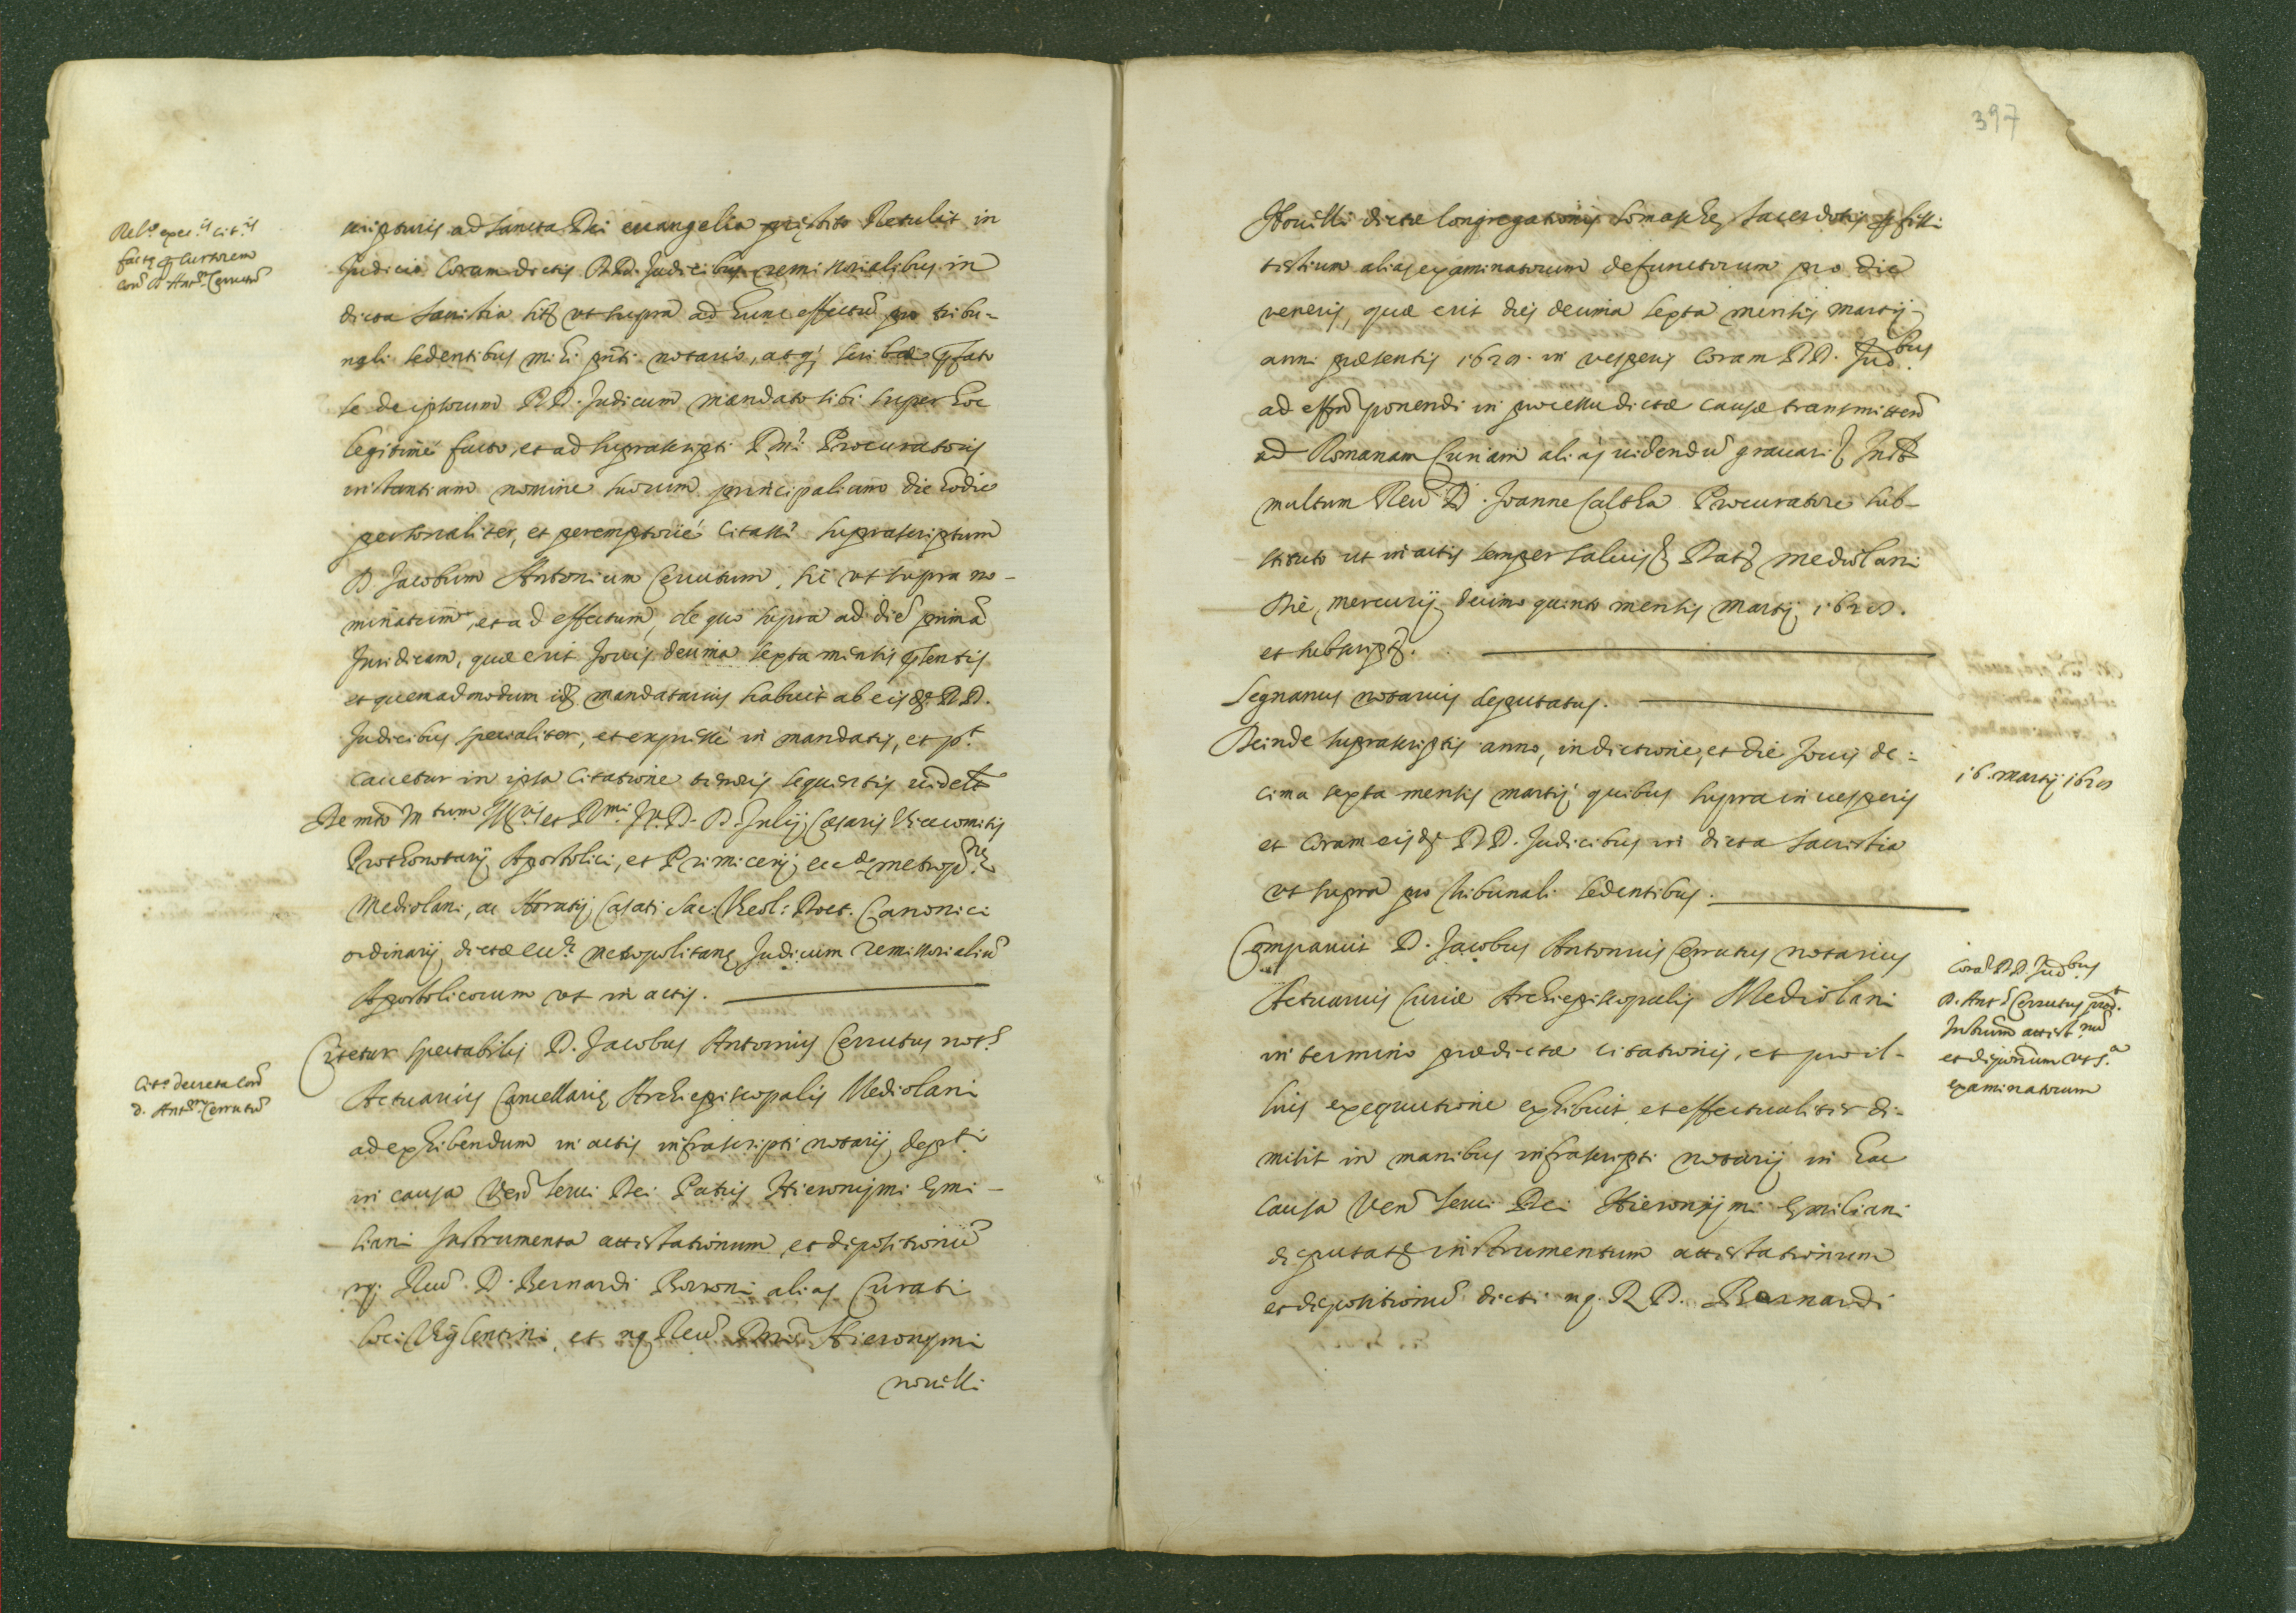 Rel.º exec.is cit.is
factę p Cursorem
con D. Ant.m Cerrutũ
scripturis ad Sancta Dei euangelia pręstito Retulit in
Judicio Coram dictis RR.DD. Judicibus remissorialibus in
dicta Sacristia sitę vt supra ad hunc effectũ pro tribu-
nali sedentibus mihi pnti notario, atq; scribæ
se de ipsorum RR.DD. Judicum mandato sibi super hoc
legitimè facto, et ad suprascripti Dni Procuratoris
instantiam nomine suorum principalium die hodie
personaliter, et peremptoriè citasse suprascriptum
D. Jacobum Antonium Cerrutum, sic vt supra no-
minatum, et ad effectum, de quo supra ad diẽ primã
Juridicam, quæ erit Jouis decima sexta mensis pˉsentis
et quemadmodum idẽ mandatarius habuit ab eisdẽ RR.DD.
Judicibus specialiter, et expressè in mandatis, et p.t
cauetur in ipsa Citatione tenoris sequentis uidelt
De mto Mtum Ill. et Rmi Jr. D. D. Julij Cæsaris Vicecomitis
Prothonotarij Apostolici, et Primicerij ecc.æ metrop.næ
Mediolani, ac Horatij Casati Sac. Theol: Doct. Canonici
ordinarij dictæ ecc.æ metropolitanę Judicum remissorialiũ
Apostolicorum vt in actis.
Cit.º decreta con
D. Ant.m Cerrutũ
Citetur spectabilis D. Jacobus Antonius Cerrutus not.s
Actuarius Cancellarię Archiepiscopalis Mediolani
ad exhibendum in actis infrascripti notarij dep.ti
in causa Venˉ serui Dei Patris Hieronymi Emi-
liani Instrumenta attestationum, et depositionũ
nq. Reuˉ. D. Bernardi Borroni alias Curati
loci Viglentini, et nq. Reuˉ. Dnˉi Hieronymi
nouelli
397
Nouelli dictæ Congregationis Somaschę Sacerdotis
testium alias examinatorum defunctorum pro die
veneris, quæ erit dies decima septa mensis martij
anni præsentis 1628. in vesperis Coram RR.DD. Judbus
ad effm ponendi in processu dictæ causæ transmittenˉ
ad Romanam Curiam alias uidendũ grauari
multum Reuˉ D. Joanne Calcha Procuratore sub-
stituto ut in actis semper saluis Datˉ Mediolani
Die, mercurij decimo quinto mensis Martij 1628.
et subscript.
Segnanus notarius deputatus.
Deinde suprascriptis anno, indictione, et die Jouis de=
cima sexta mensis martij quibus supra in uesperis
et coram eisdẽ RR.DD. Judicibus in dicta Sacristia
vt supra pro tribunali sedentibus.
16. martij 1628
Comparuit D. Jacobus Antonius Cerrutus notarius
Actuarius Curiæ Archiepiscopalis Mediolani
in termino prædictæ citationis, et pro il-
lius exequutione exhibuit, et effectualiter di-
misit in manibus infrascripti notarij in hac
causa Venˉ serui Dei Hieronymi Emiliani
deputatˉ instrumentum attestationum
et depositionũ dicti nq. R.D. Bernardi
Corã RR.DD. Judbus
D. Ant.s Cerrutus prod.t
Instrum attest.num
et depõnum vt s.a
examinatorum